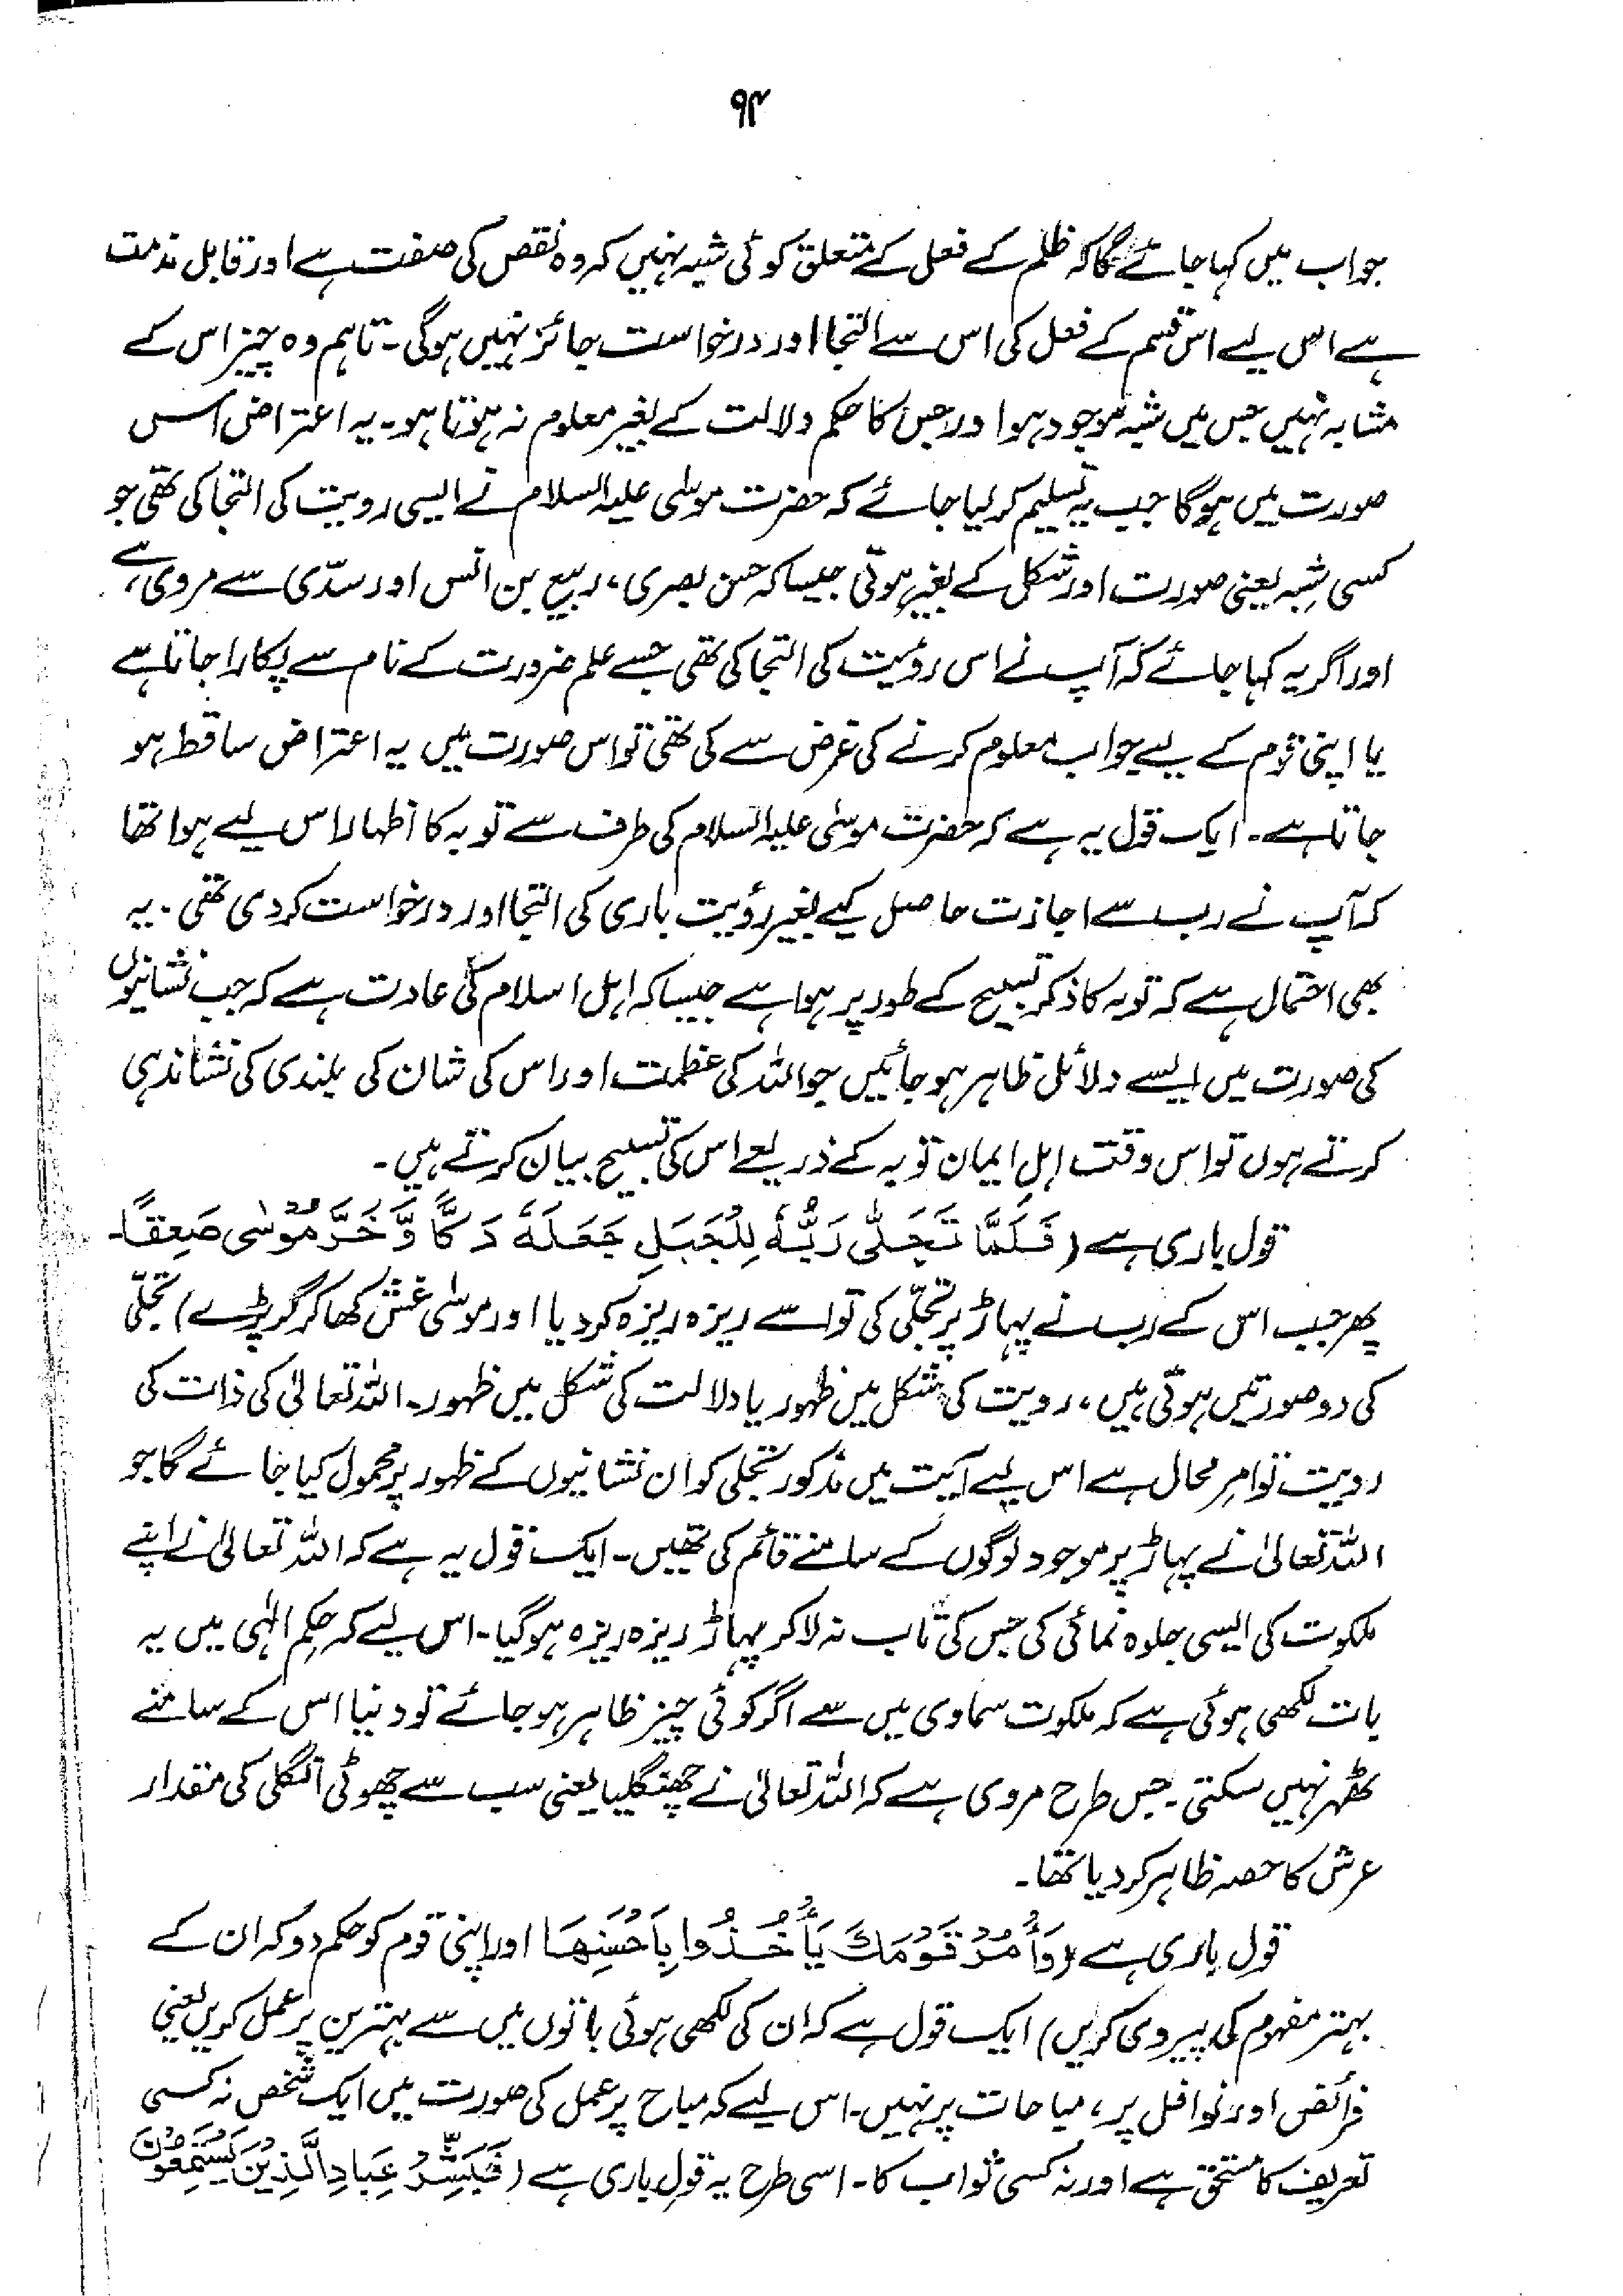 ۹۴
جواب میں کہا جائے گا کہ ظلم کے فعل کے متعلق کوئی شبہ نہیں کہ وہ نقص کی صفت ہے اور قابل مذمت
ہے اس لیے اس قسم کے فعل کی اس سے التجا اور درخواست جائز نہیں ہوگی۔ تاہم وہ چیز اس کے
مشابہ نہیں جس میں شبہ موجود ہو اور جس کا حکم دلالت کے بغیر معلوم نہ ہوتا ہو۔ یہ اعتراض اس
صورت میں ہوگا جب یہ تسلیم کر لیا جائے کہ حضرت موسیٰ علیہ السلام نے ایسی رویت کی التجا کی تھی جو
کسی شبہ یعنی صورت اور شکل کے بغیر ہوتی جیسا کہ حسن بصری، ربیع بن انس اور سدّی سے مروی ہے،
اور اگر یہ کہا جائے کہ آپ نے اس رؤیت کی التجا کی تھی جسے علم ضرورت کے نام سے پکارا جاتا ہے
یا اپنی قوم کے لیے جواب معلوم کرنے کی غرض سے کی تھی تو اس صورت میں یہ اعتراض ساقط ہو
جاتا ہے۔ ایک قول یہ ہے کہ حضرت موسیٰ علیہ السلام کی طرف سے توبہ کا اظہار اس لیے ہوا تھا
کہ آپ نے رب سے اجازت حاصل کیے بغیر رؤیت باری کی التجا اور درخواست کر دی تھی۔ یہ
بھی احتمال ہے کہ توبہ کا ذکر تسبیح کے طور پر ہوا ہے جیسا کہ اہل اسلام کی عادت ہے کہ جب نشانیوں
کی صورت میں ایسے دلائل ظاہر ہو جائیں جو اللہ کی عظمت اور اس کی شان کی بلندی کی نشاندہی
کرتے ہوں تو اس وقت اہلِ ایمان توبہ کے ذریعے اس کی تسبیح بیان کرتے ہیں۔
قول باری ہے (فَلَمَّا تَجَلّٰی رَبُّهٗ لِلْجَبَلِ جَعَلَهٗ دَكًّا وَّ خَرَّ مُوْسٰی صَعِقًا۔
پھر جب اس کے رب نے پہاڑ پر تجلّی کی تو اسے ریزہ ریزہ کر دیا اور موسیٰ غش کھا کر گر پڑے) تجلّی
کی دو صورتیں ہوتی ہیں، رویت کی شکل میں ظہور یا دلالت کی شکل میں ظہور۔ اللہ تعالیٰ کی ذات کی
رویت تو امرِ محال ہے اس لیے آیت میں مذکور تجلی کو ان نشانیوں کے ظہور پر محمول کیا جائے گا جو
اللہ تعالیٰ نے پہاڑ پر موجود لوگوں کے سامنے قائم کی تھیں۔ ایک قول یہ ہے کہ اللہ تعالیٰ نے اپنے
ملکوت کی ایسی جلوہ نمائی کی جس کی تاب نہ لا کر پہاڑ ریزہ ریزہ ہو گیا۔ اس لیے کہ حکمِ الٰہی میں یہ
بات لکھی ہوئی ہے کہ ملکوت سماوی میں سے اگر کوئی چیز ظاہر ہو جائے تو دنیا اس کے سامنے
ٹھہر نہیں سکتی۔ جس طرح مروی ہے کہ اللہ تعالیٰ نے چھنگلیا یعنی سب سے چھوٹی انگلی کی مقدار
عرش کا حصہ ظاہر کر دیا تھا۔
قول باری ہے (وَأْمُرْ قَوْمَكَ يَأْخُذُوا بِأَحْسَنِهَا اور اپنی قوم کو حکم دو کہ ان کے
بہتر مفہوم کی پیروی کریں) ایک قول ہے کہ ان کی لکھی ہوئی باتوں میں سے بہترین پر عمل کریں یعنی
فرائض اور نوافل پر، مباحات پر نہیں۔ اس لیے کہ مباح پر عمل کی صورت میں ایک شخص نہ کسی
تعریف کا مستحق ہے اور نہ کسی ثواب کا۔ اسی طرح یہ قولِ باری ہے (فَبَشِّرْ عِبَادِ الَّذِيْنَ يَسْتَمِعُوْنَ